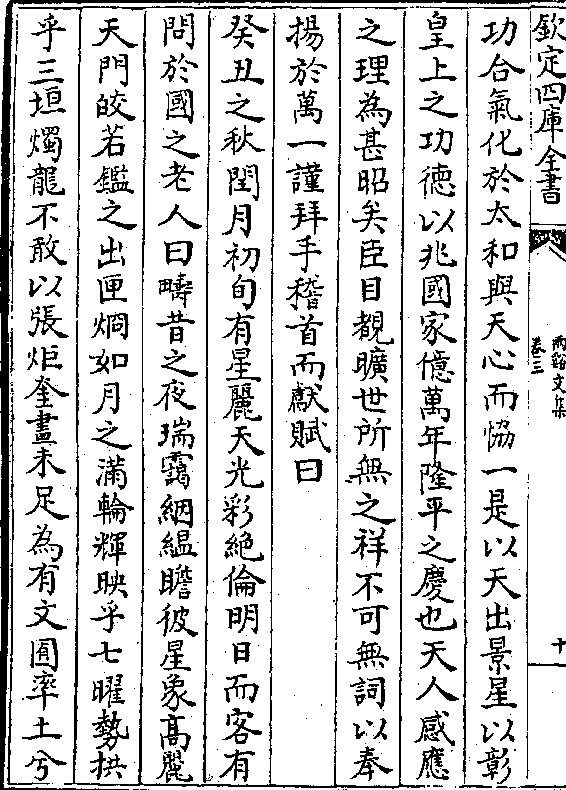 欽定四庫全書
兩谿文集
卷三
十
功合氣化於太和與天心而恊一是以天出景星以彰
皇上之功德以兆國家億萬年隆平之慶也天人感應
之理為甚昭矣臣目覩曠世所無之祥不可無詞以奉
揚於萬一謹拜手稽首而獻賦曰
癸丑之秋閏月初旬有星麗天光彩絶倫明日而客有
問於國之老人曰疇昔之夜瑞靄絪緼瞻彼星象髙麗
天門皎若鑑之出匣烱如月之滿輪輝映乎七曜勢拱
乎三垣燭龍不敢以張炬奎畫未足為有文囿率土兮